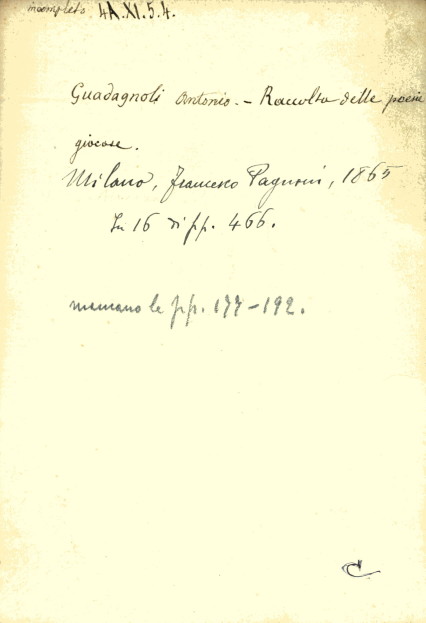 incompleto 4A.XI.5.4.
Guadagnoli Antonio. - Raccolta delle poesie
giocose.
Milano, Francesco Pagnoni, 1865
In 16 di pp. 466.
mancano le pp. 177-192.